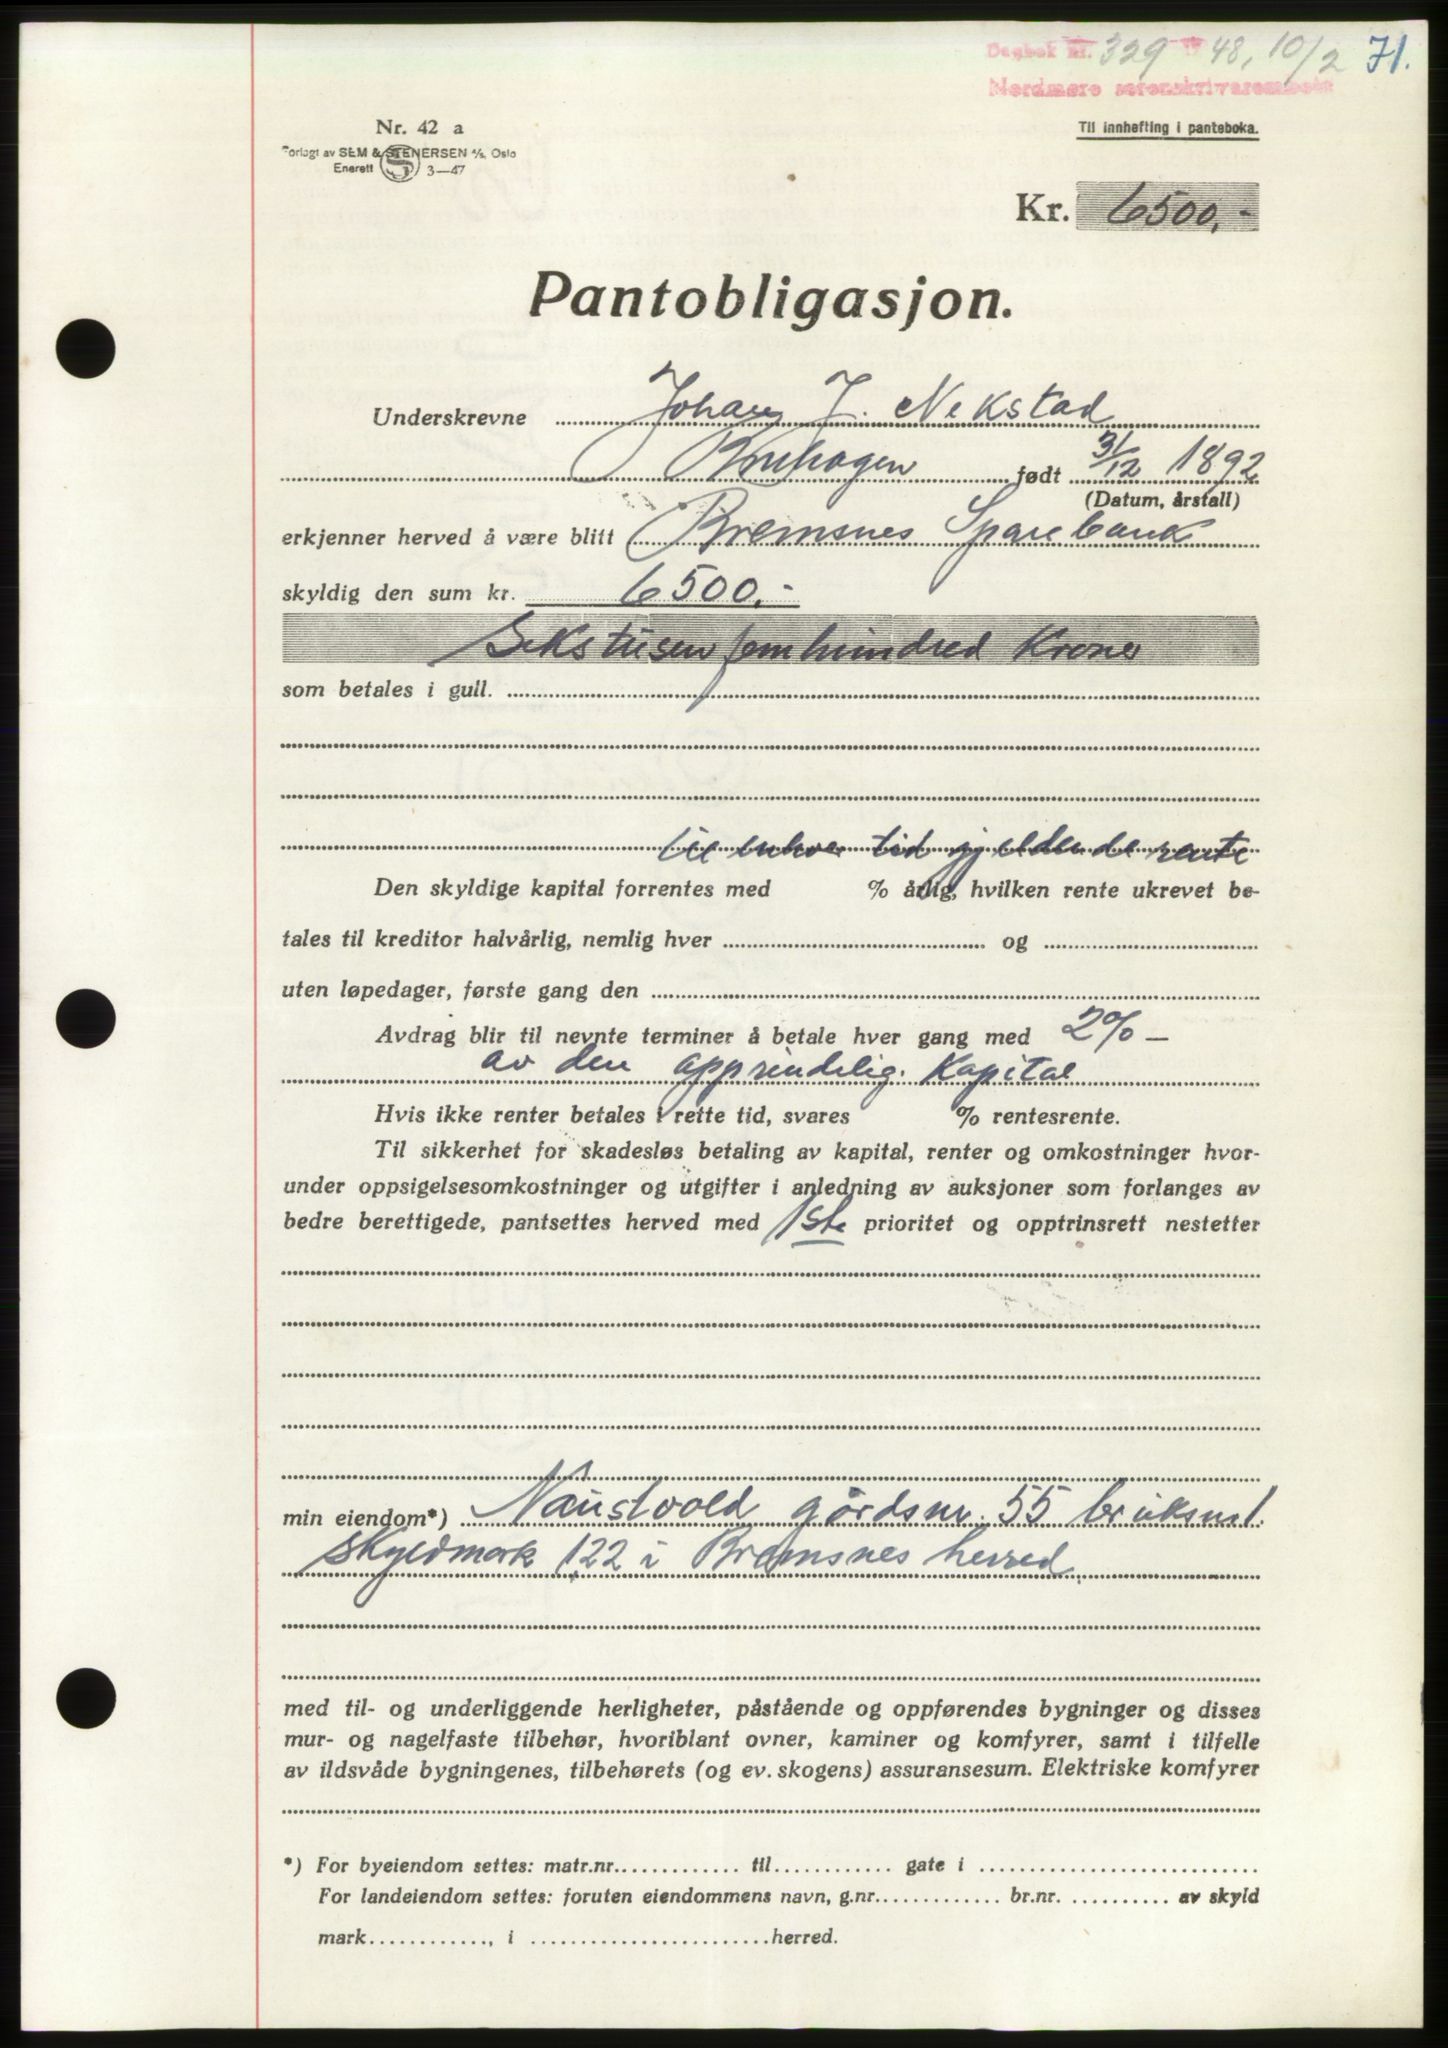 Dagbok nr. 329 48, 10/2 71.
Nordmøre sorenskriverembete
Nr. 42 a
Forlagt av SEM & STENERSEN A/S, Oslo
Enerett 3—47
Til innhefting i panteboka.
Kr. 6500,-
Pantobligasjon.
Underskrevne Johan J. Nekstad
Bruhagen født 31/12 1892
(Datum, årstall)
erkjenner herved å være blitt Bremsnes Sparebank
skyldig den sum kr. 6500,-
Sekstusenfemhundred Kroner
som betales i gull.
til enhver tid gjeldende rente
Den skyldige kapital forrentes med % årlig, hvilken rente ukrevet be-
tales til kreditor halvårlig, nemlig hver og
uten løpedager, første gang den
Avdrag blir til nevnte terminer å betale hver gang med 2% —
av den opprindelig. Kapital
Hvis ikke renter betales i rette tid, svares % rentesrente.
Til sikkerhet for skadesløs betaling av kapital, renter og omkostninger hvor-
under oppsigelsesomkostninger og utgifter i anledning av auksjoner som forlanges av
bedre berettigede, pantsettes herved med 1ste prioritet og opptrinsrett nestetter
min eiendom*) Naustvold gårdsnr. 55 bruksnr 1.
skyldmark 1,22 i Bremsnes herred.
med til- og underliggende herligheter, påstående og oppførendes bygninger og disses
mur- og nagelfaste tilbehør, hvoriblant ovner, kaminer og komfyrer, samt i tilfelle
av ildsvåde bygningenes, tilbehørets (og ev. skogens) assuransesum. Elektriske komfyrer
*) For byeiendom settes: matr.nr............. til............ gate i ............................
For landeiendom settes: foruten eiendommens navn, g.nr............. br.nr. .......... av skyld
mark............, i ........................herred.